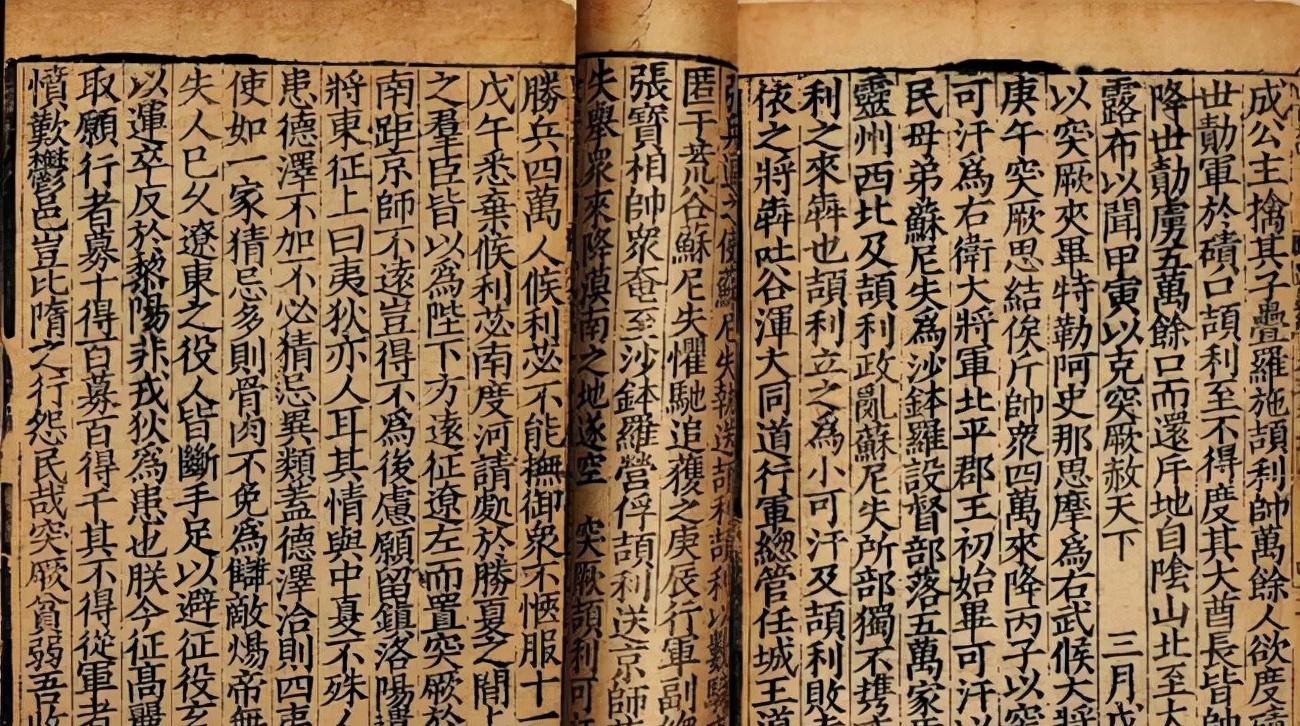 成公主擒其子疊羅施頡利帥萬餘人欲度
世勣軍於磧口頡利至不得度其大酋長皆
降世勣虜五萬餘口而還斥地自陰山北至大
露布以聞甲寅以克突厥赦天下　三月戊
以突厥夾畢特勒阿史那思摩爲右武候大將
庚午突厥思結俟斤帥衆四萬來降丙子以突
可汗爲右衛大將軍北平郡王初始畢可汗以
民母弟蘇尼失爲沙鉢羅設督部落五萬家
靈州西北及頡利政亂蘇尼失所部獨不攜
利之來奔也頡利立之爲小可汗及頡利敗
依之將奔吐谷渾大同道行軍緫管任城王道
之使蘇尼失執送頡利頡利以數騎
匿于荒谷蘇尼失懼馳追獲之庚辰行軍副緫
張寶相帥衆奄至沙鉢羅營俘頡利送京師
失舉衆來降漠南之地遂空　突厥頡利可
勝兵四萬人候利苾不能撫御衆不愜服十一
戊午悉棄候利苾南度河請處於勝夏之間上
之羣臣皆以爲陛下方遠征遼左而置突厥於
南距京師不遠豈得不爲後慮願留鎮洛陽遣
將東征上曰夷狄亦人耳其情與中夏不殊人
患德澤不加不必猜忌異類蓋德澤洽則四夷
使如一家猜忌多則骨肉不免爲讎敵煬帝無
失人已久遼東之役人皆斷手足以避征役玄
以運卒反於黎陽非戎狄爲患也朕今征髙麗
取願行者募十得百募百得千其不得從軍者
憤歎鬱邑豈比隋之行怨民哉突厥貧弱吾收